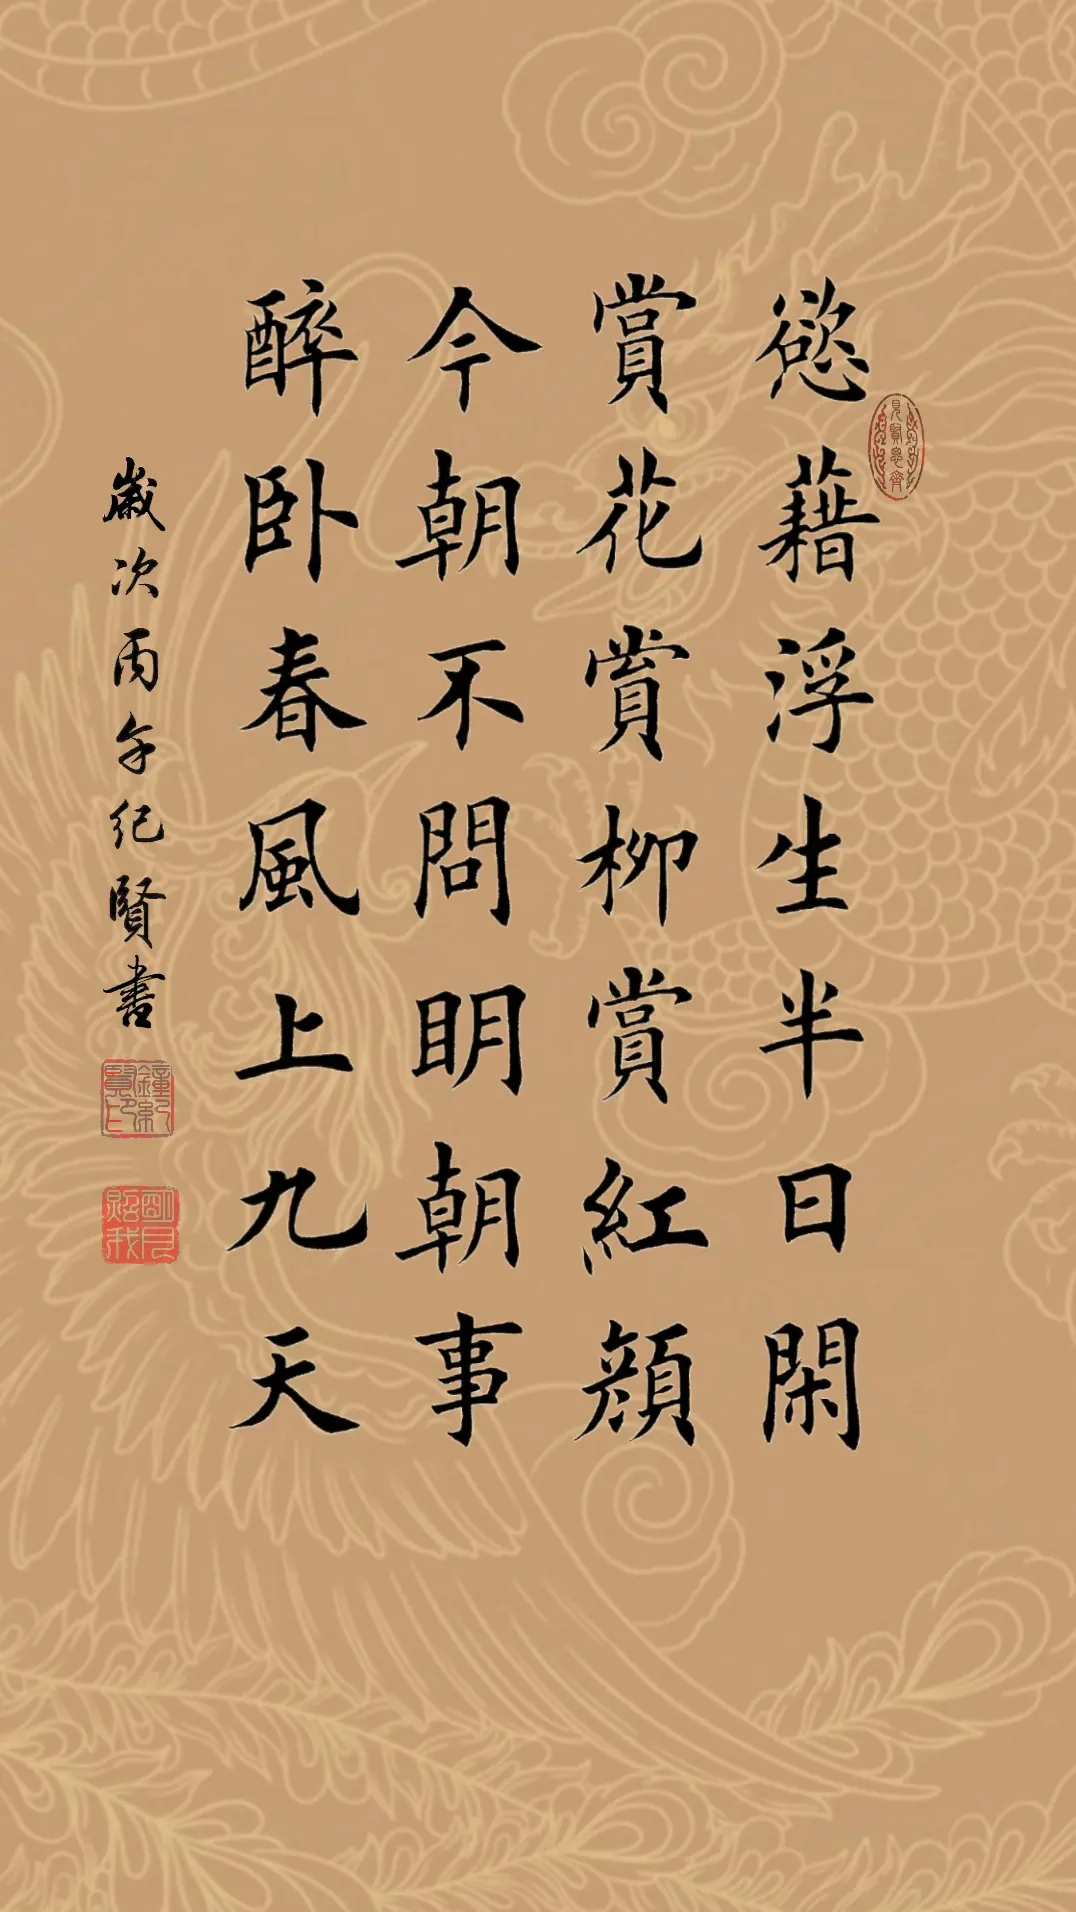 慾藉浮生半日閑
賞花賞柳賞紅顏
今朝不問明朝事
醉卧春風上九天
歲次丙午紀賢書
見賢思齊
鐘紀賢印